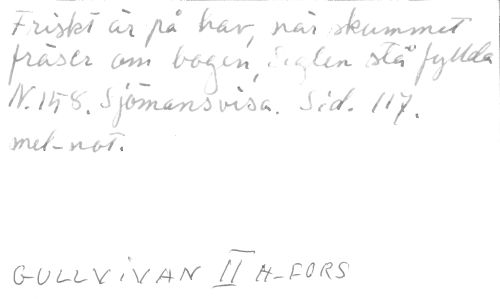 Friskt är på hav, när skummet
fräser om bogen, Seglen stå fyllda
N. 158. Sjömansvisa. Sid. 117.
mel-not.
GULLVIVAN II H-FORS